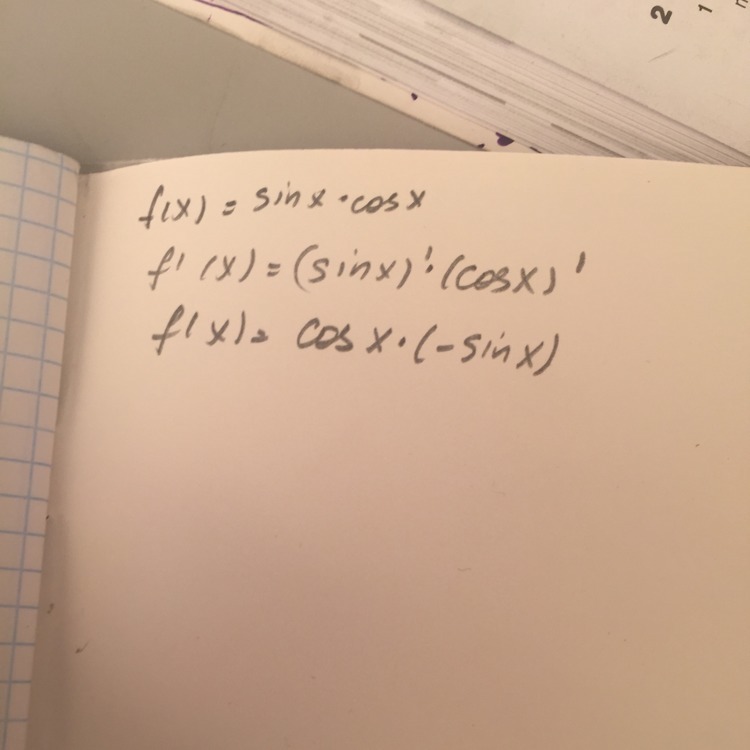 2
1
f(x) = sinx·cosx
f'(x) = (sinx)'·(cosx)'
f(x) = cosx·(-sinx)